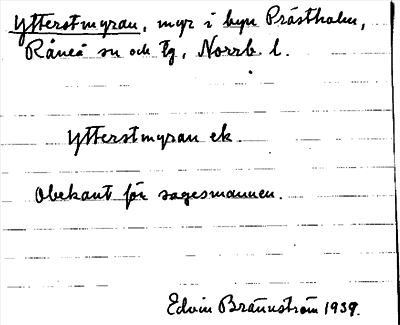 Ytterstmyran, myr i byn Prästholm,
Råneå sn och tg, Norrb. l.
Ytterstmyran ek.
Obekant för sagesmannen.
Edvin Brännström 1939.